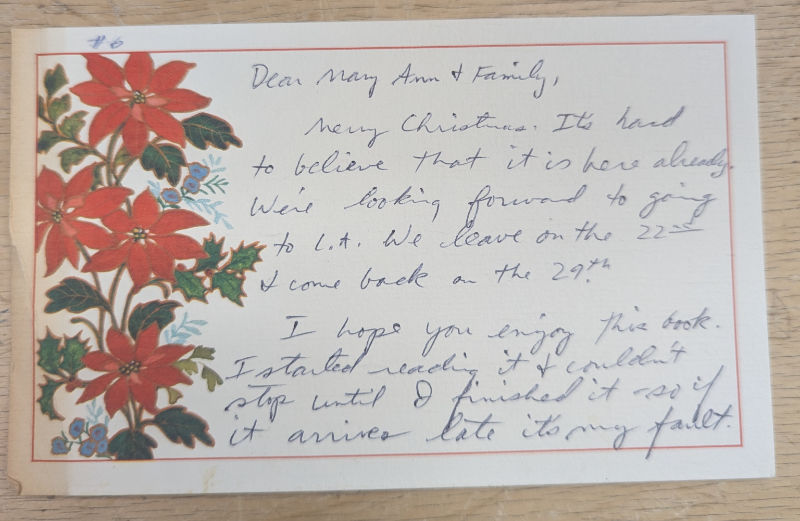 #6
Dear Mary Ann & Family,
Merry Christmas. It's hard
to believe that it is here already.
We're looking forward to going
to L.A. We leave on the 22nd
& come back on the 29th.
I hope you enjoy this book.
I started reading it & couldn't
stop until I finished it - so if
it arrives late it's my fault.